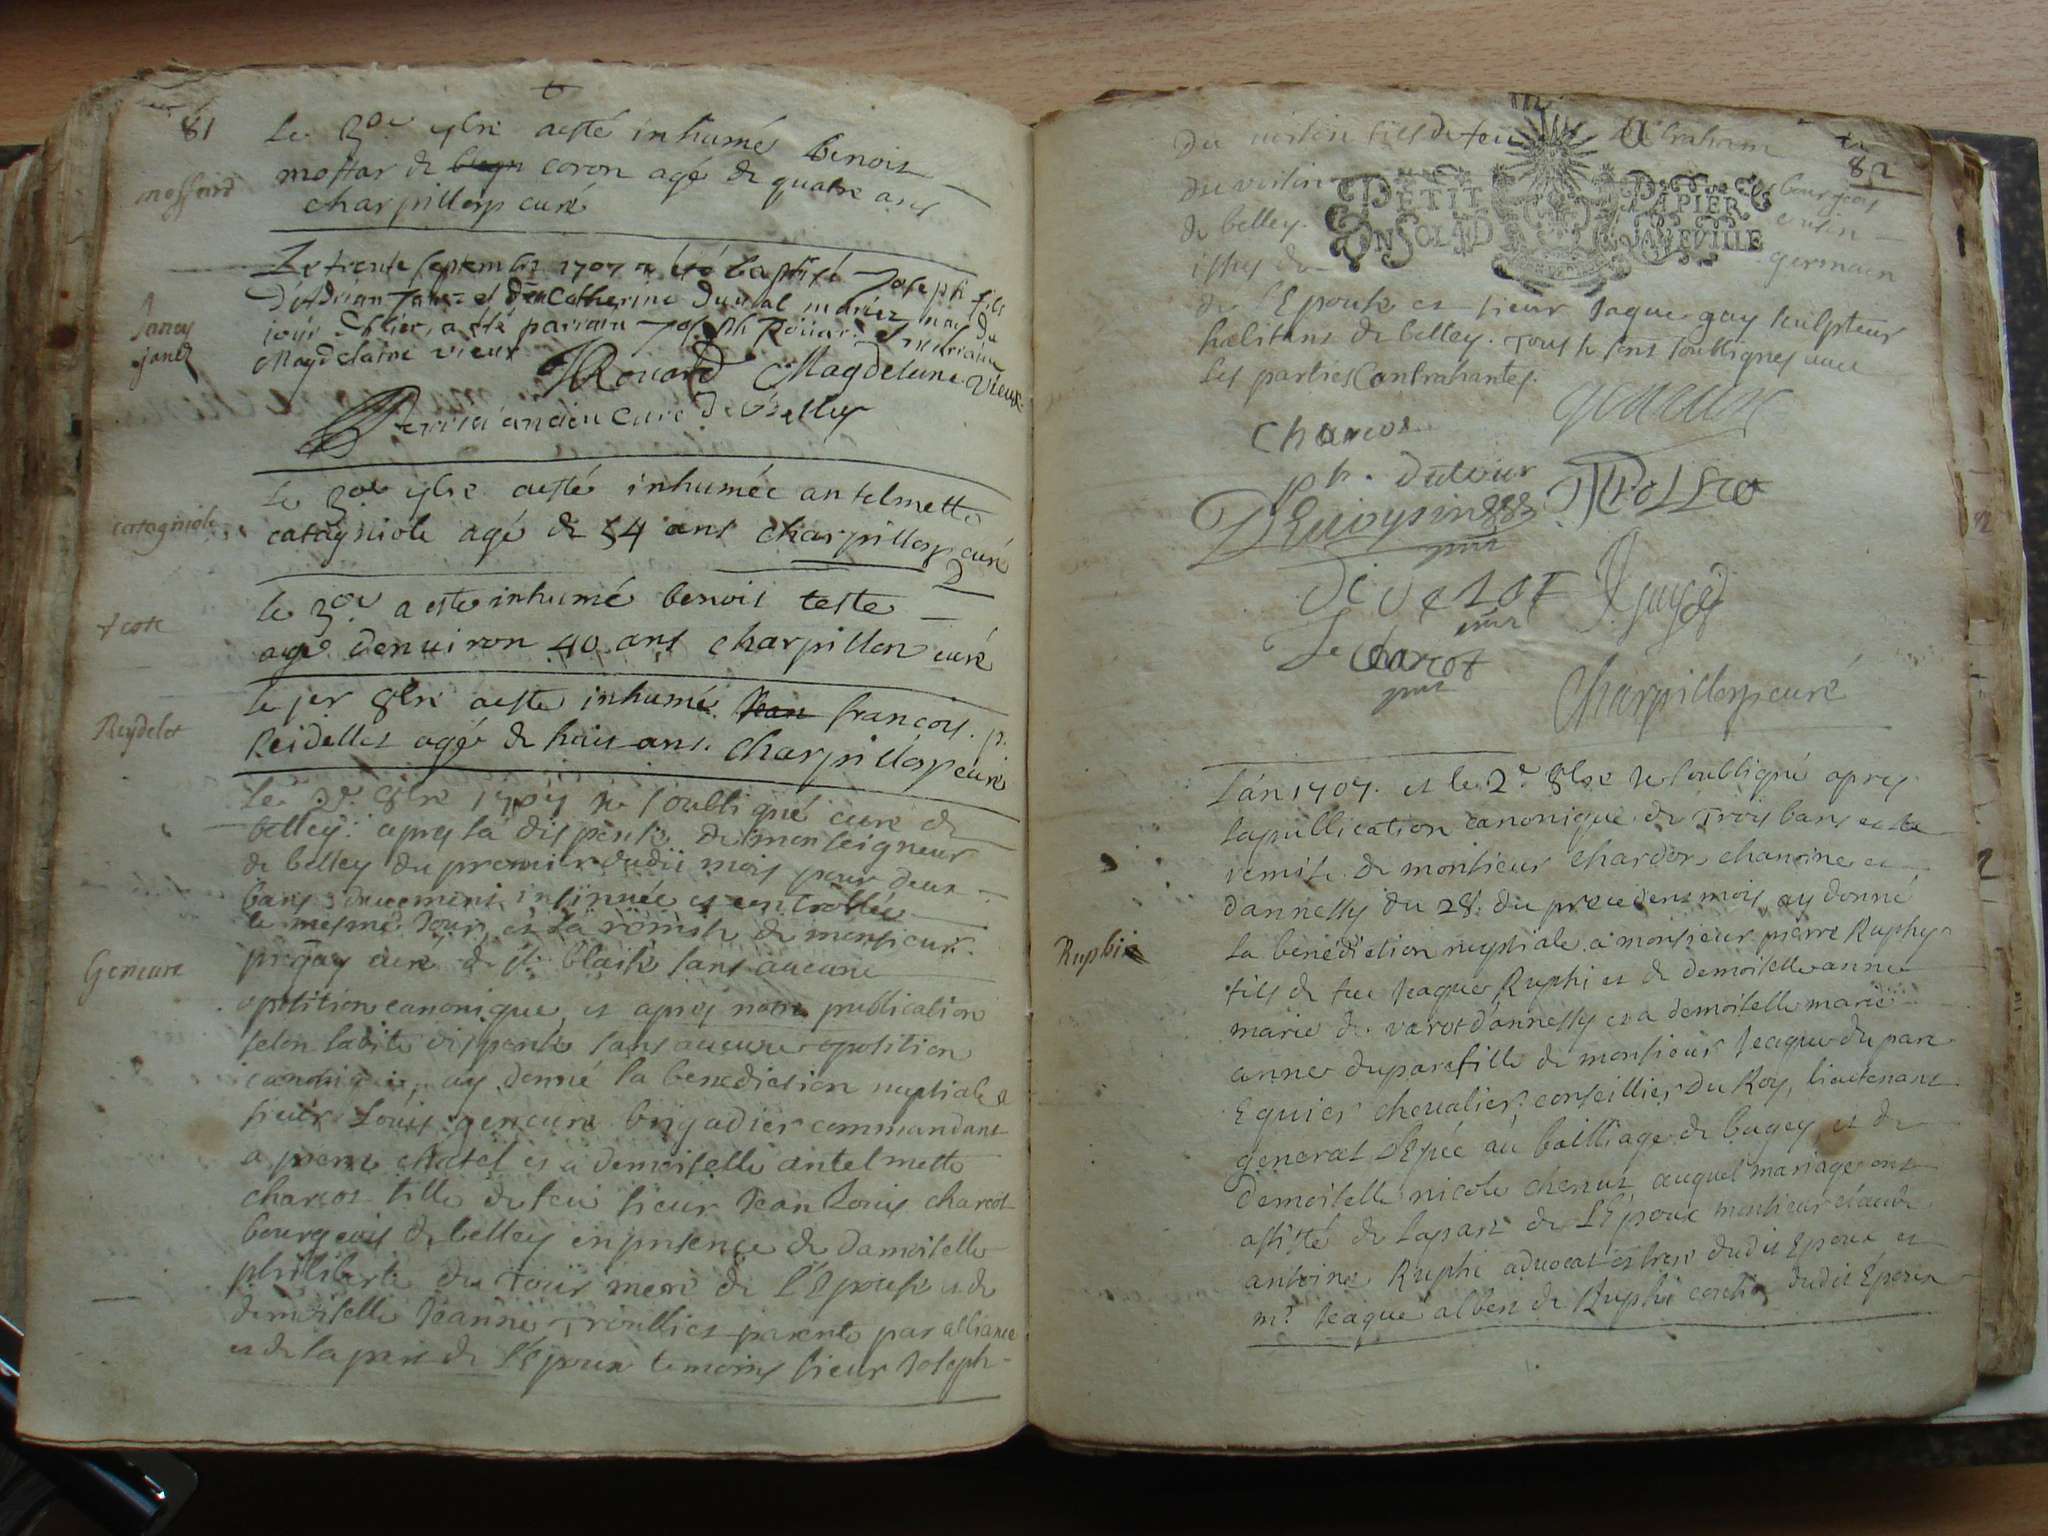 81
Le 30e 7bre aesté inhumé benois
mossard
mostar de coron agé de quatre ans
charpillon curé
Le trente septembre 1707 a été baptisé Joseph fils
d'Adrian Janez et de Catherine duual mariez nay du
Janez
jour a été parrain Joseph Roüard et marraine
Magdelaine vieux
JRouard Magdeleine vieux
ancien curé de Belley
Le 30e 7bre aesté inhumée antelmette
catagniole
catagniole agé de 54 ans charpillon curé
le 30e a esté inhumé benois teste
teste
agé denuiron 40 ans charpillon curé
le jer 8bre aesté inhumé Jean françois
Reydelet
Reidellet agé de huit ans. charpillon curé
Le 2e 8bre 1707 Je soubsigné curé de
belley apres la dispense de monseigneur
de belley du premier dudit mois pour deux
bans deuement insinuée et controllée
le mesme Jour, et la remise de monsieur
curé de st blaise sans aucune
Geneure
opposition canonique, et apres notre publication
selon ladite dispense sans aucune oposition
canonique, ay donné la benediction nuptiale a
sieur Louis geneure brigadier commandant
a pierre chatel et a demoiselle antelmette
charcot fille de feu sieur Jean Louis charcot
bourgeois de belley en presence de damoiselle
philiberte du Tour mere de l'Epouse et de
demoiselle Jeanne Troullies parente par alliance
et de la part de l'Epoux temoins sieur Joseph
82
du voisin fils de feu Abraham
du voisin bourgeois
de belley. cousin
issus de germain
PETIT PAPIER
UN SOL LA FEUILLE
de l'Epouse et sieur Jaque gay sculpteur
habitans de belley. Tous se sont soubsignes auec
les parties Contrahantes.
geneure
Charcot
ph. dutour
Deuoysin
Charcot
Charpillon curé
L'an 1707. et le 2e 8bre Je soubsigné apres
la publication canonique de Trois bans et la
remise de monsieur chardon chanoine
dannessy du 28. du precedent mois, ay donné
Ruphi
la benediction nuptiale a monsieur pierre Ruphy
fils de feu Jeaque Ruphi et de demoiselle anne
marie de varot dannessy et a demoiselle marie
anne duparc fille de monsieur Jeaque du parc
Equier cheualier conseillier du Roy, lieutenant
general d'Epée au bailliage de bugey, et de
demoiselle nicole chenut auquel mariage ont
assisté de la part de l'Epoux monsieur claude
antoine Ruphi aduocat et frere dudit Epoux et
mr Jeaque albert de Ruphi cousin dudit Epoux